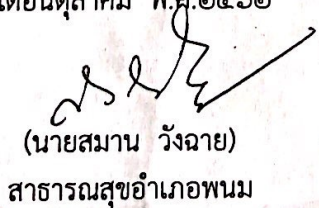 เดือนตุลาคม พ.ศ.๒๕๖๒
(นายสมาน วังฉาย)
สาธารณสุขอำเภอพนม